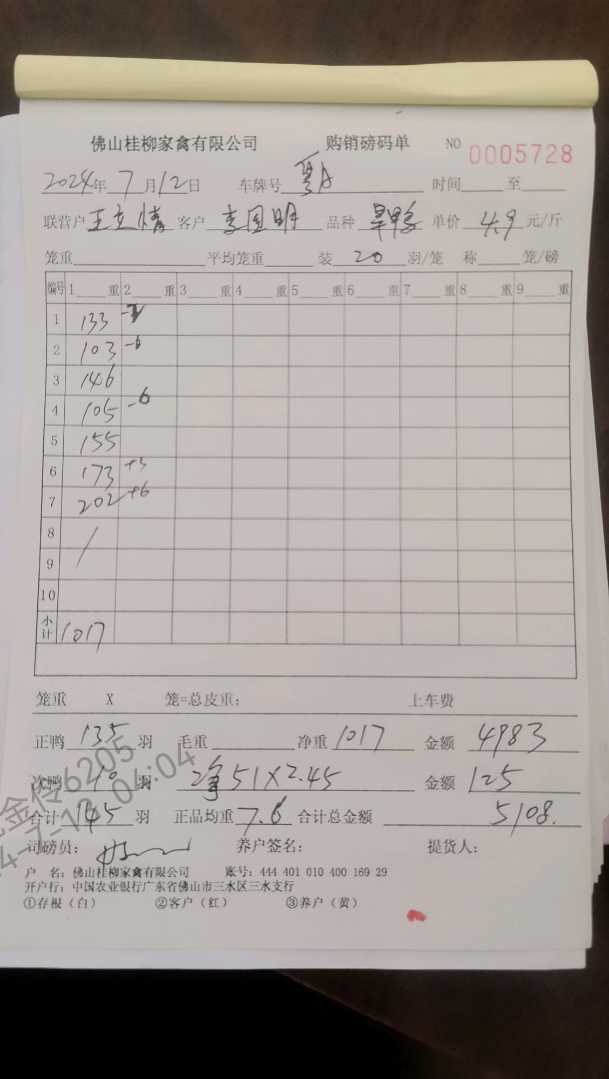 佛山桂柳家禽有限公司 购销磅码单 NO 0005728
2024年 7月12日 车牌号 粤A 时间 至
联营户 王立情 客户 李国明 品种 旱鸭 单价 4.9 元/斤
笼重 平均笼重 装 20 羽/笼 称 笼/磅
编号 1 重 2 重 3 重 4 重 5 重 6 重 7 重 8 重 9 重
1 133
2 103 -6
3 146
4 105 -6
5 155
6 173 +3
7 202 +6
8 /
9
10
小计 1017
笼重 X 笼=总皮重: 上车费
正鸭 135 羽 毛重 净重 1017 金额 4983
次鸭 10 羽 净51X2.45 金额 125
合计 145 羽 正品均重 7.6 合计总金额 5108.
司磅员: 养户签名: 提货人:
户 名: 佛山桂柳家禽有限公司 账号: 444 401 010 400 169 29
开户行: 中国农业银行广东省佛山市三水区三水支行
①存根(白) ②客户(红) ③养户(黄)
金传6205
04:04